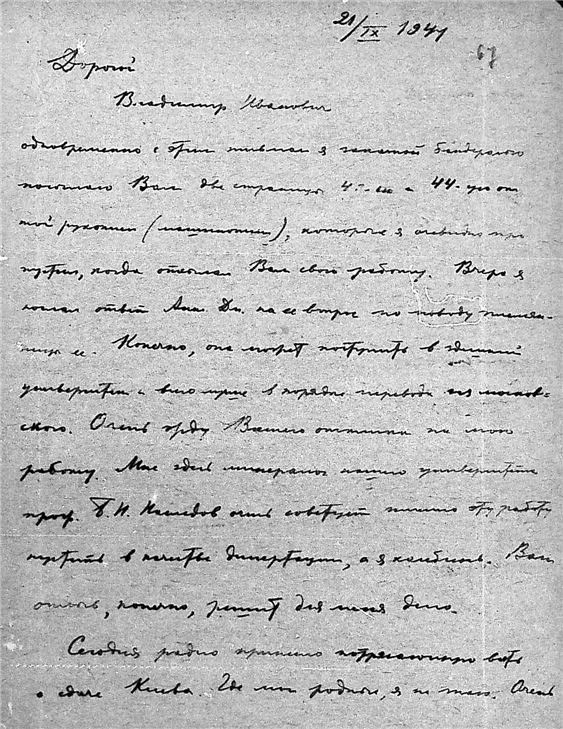 21/IX 1941
67
Дорогой
Владимир Иванович
одновременно с этим письмом я заказной бандеролью
посылаю Вам две страницы 4-ю и 44-ую от
той рукописи (машинописи), которые я очевидно про
пустил, когда отсылал Вам свою работу. Вчера я
послал ответ Анн. Дм. на ее вопрос по поводу племян-
ницы ее. Конечно, она может поступить в здешний
университет и всего лучше в порядке перевода из москов-
ского. Очень жду Вашего отклика на мою
работу. Мне здесь минералог нашего университета
проф. Б. И. Наследов очень советует именно эту работу
пустить в качестве диссертации, а я колеблюсь. Ваш
отзыв, конечно, решит для меня дело.
Сегодня радио принесло потрясающую весть
о сдаче Киева. Где мои родные, я не знаю. Очень